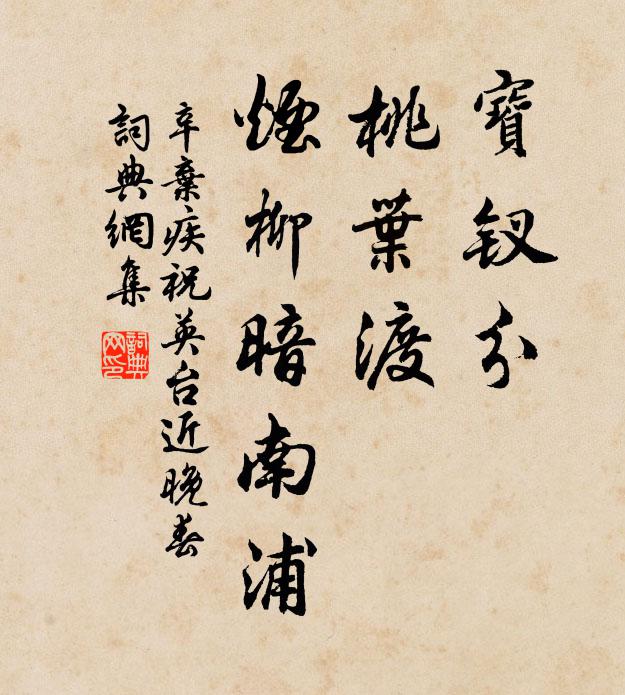 寶釵分
桃葉渡
煙柳暗南浦
辛棄疾祝英台近晚春
詞典網集
詞典網印